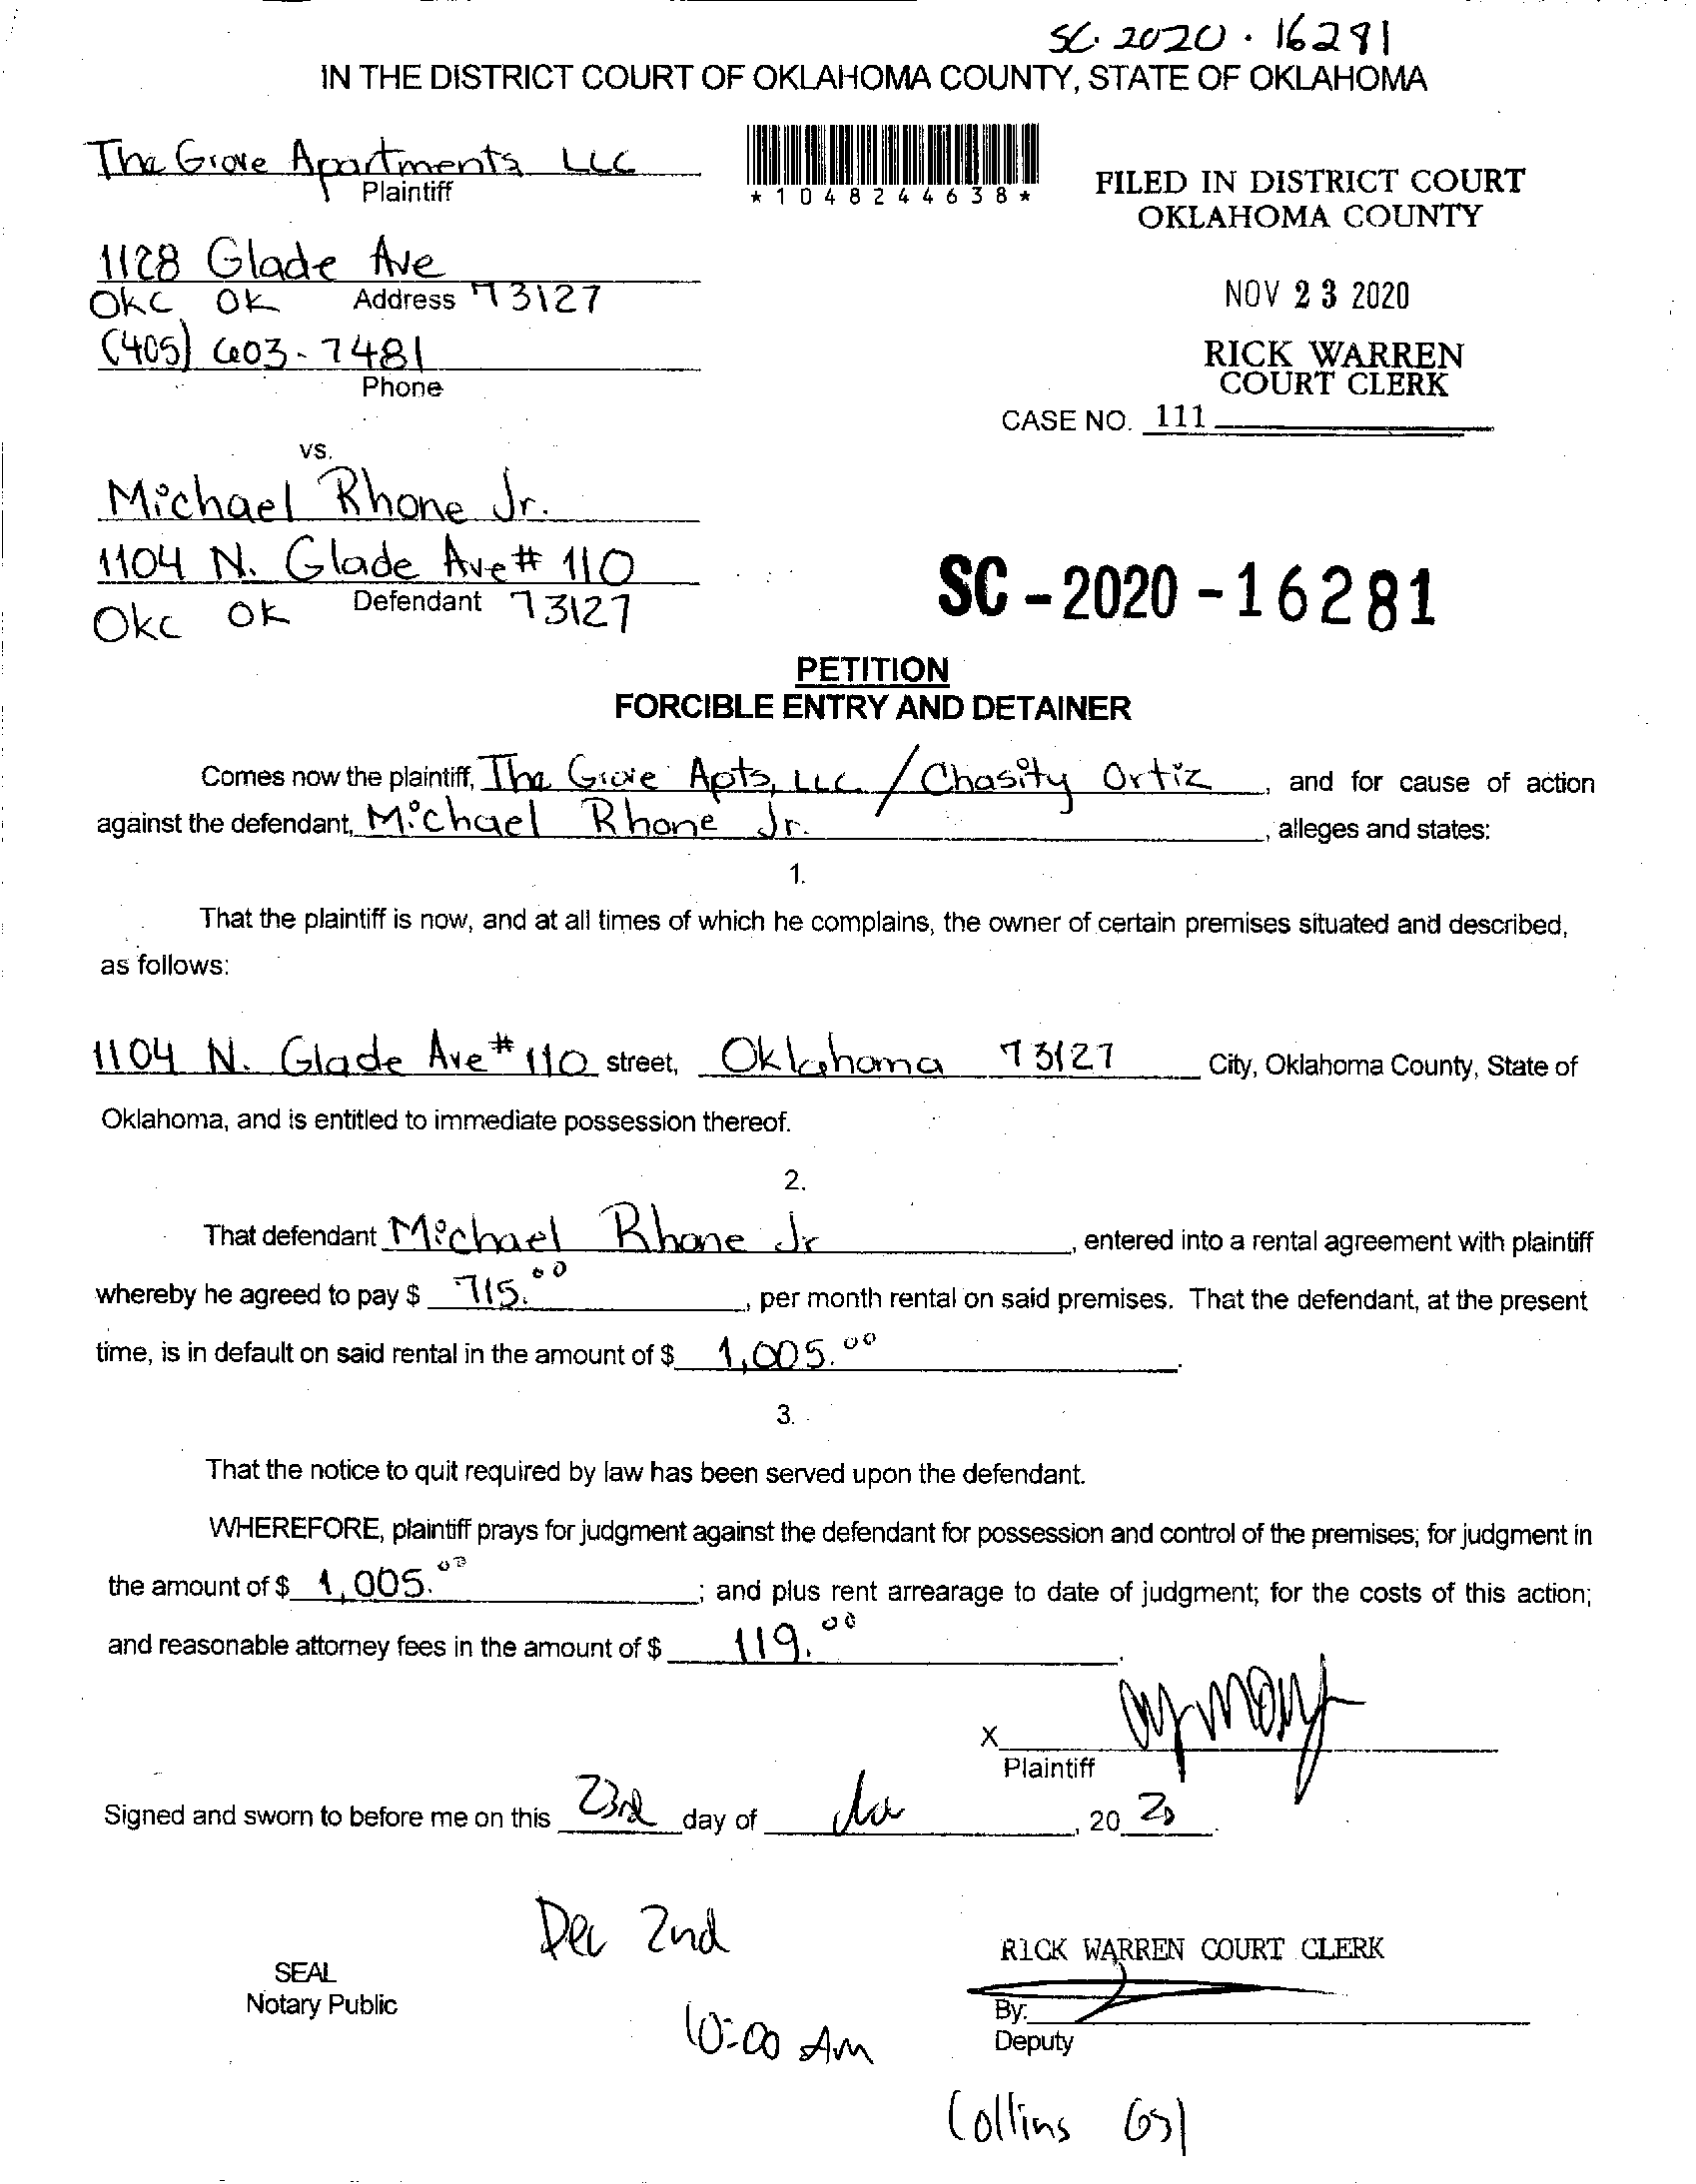 SC. 2020 . 16281
IN THE DISTRICT COURT OF OKLAHOMA COUNTY, STATE OF OKLAHOMA
The Grove Apartments LLC
Plaintiff
*1048244638*
FILED IN DISTRICT COURT
OKLAHOMA COUNTY
1128 Glade Ave
OKC OK Address 73127
NOV 23 2020
(405) 603-7481
Phone
RICK WARREN
COURT CLERK
CASE NO. 111
vs.
Michael Rhone Jr.
1104 N. Glade Ave # 110
Defendant
OKC OK 73127
SC - 2020 - 16281
PETITION
FORCIBLE ENTRY AND DETAINER
Comes now the plaintiff, The Grove Apts, LLC / Chasity Ortiz, and for cause of action
against the defendant, Michael Rhone Jr., alleges and states:
1.
That the plaintiff is now, and at all times of which he complains, the owner of certain premises situated and described,
as follows:
1104 N. Glade Ave # 110 street, Oklahoma 73127 City, Oklahoma County, State of
Oklahoma, and is entitled to immediate possession thereof.
2.
That defendant Michael Rhone Jr, entered into a rental agreement with plaintiff
whereby he agreed to pay $ 715.00, per month rental on said premises. That the defendant, at the present
time, is in default on said rental in the amount of $ 1,005.00.
3.
That the notice to quit required by law has been served upon the defendant.
WHEREFORE, plaintiff prays for judgment against the defendant for possession and control of the premises; for judgment in
the amount of $ 1,005.00; and plus rent arrearage to date of judgment; for the costs of this action;
and reasonable attorney fees in the amount of $ 119.00.
X
Plaintiff
Signed and sworn to before me on this 23rd day of , 20 20.
Dec 2nd
RICK WARREN COURT CLERK
SEAL
Notary Public
10:00 AM
By:
Deputy
Collins